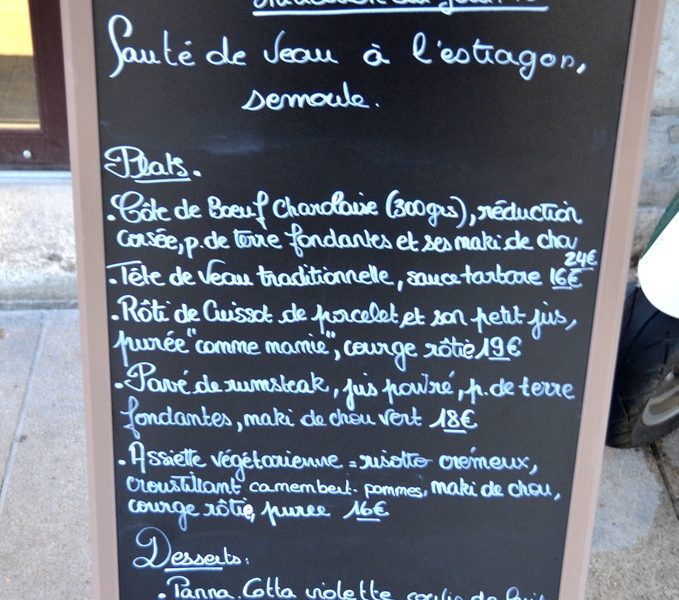 Sauté de veau à l'estragon,
semoule.
Plats.
.Côte de Boeuf Charolaise (300grs), réduction
corsée, p. de terre fondantes et ses maki de chou
24€
.Tête de Veau traditionnelle, sauce tartare 16€
.Rôti de Cuissot de porcelet et son petit jus,
purée "comme mamie", courge rôtie 19€
.Pavé de rumsteak, jus poivré, p. de terre
fondantes, maki de chou vert 18€
.Assiette végétarienne = risotto crémeux,
croustillant camembert-pommes, maki de chou,
courge rôtie, purée 16€
Desserts:
.Panna Cotta violette coulis de